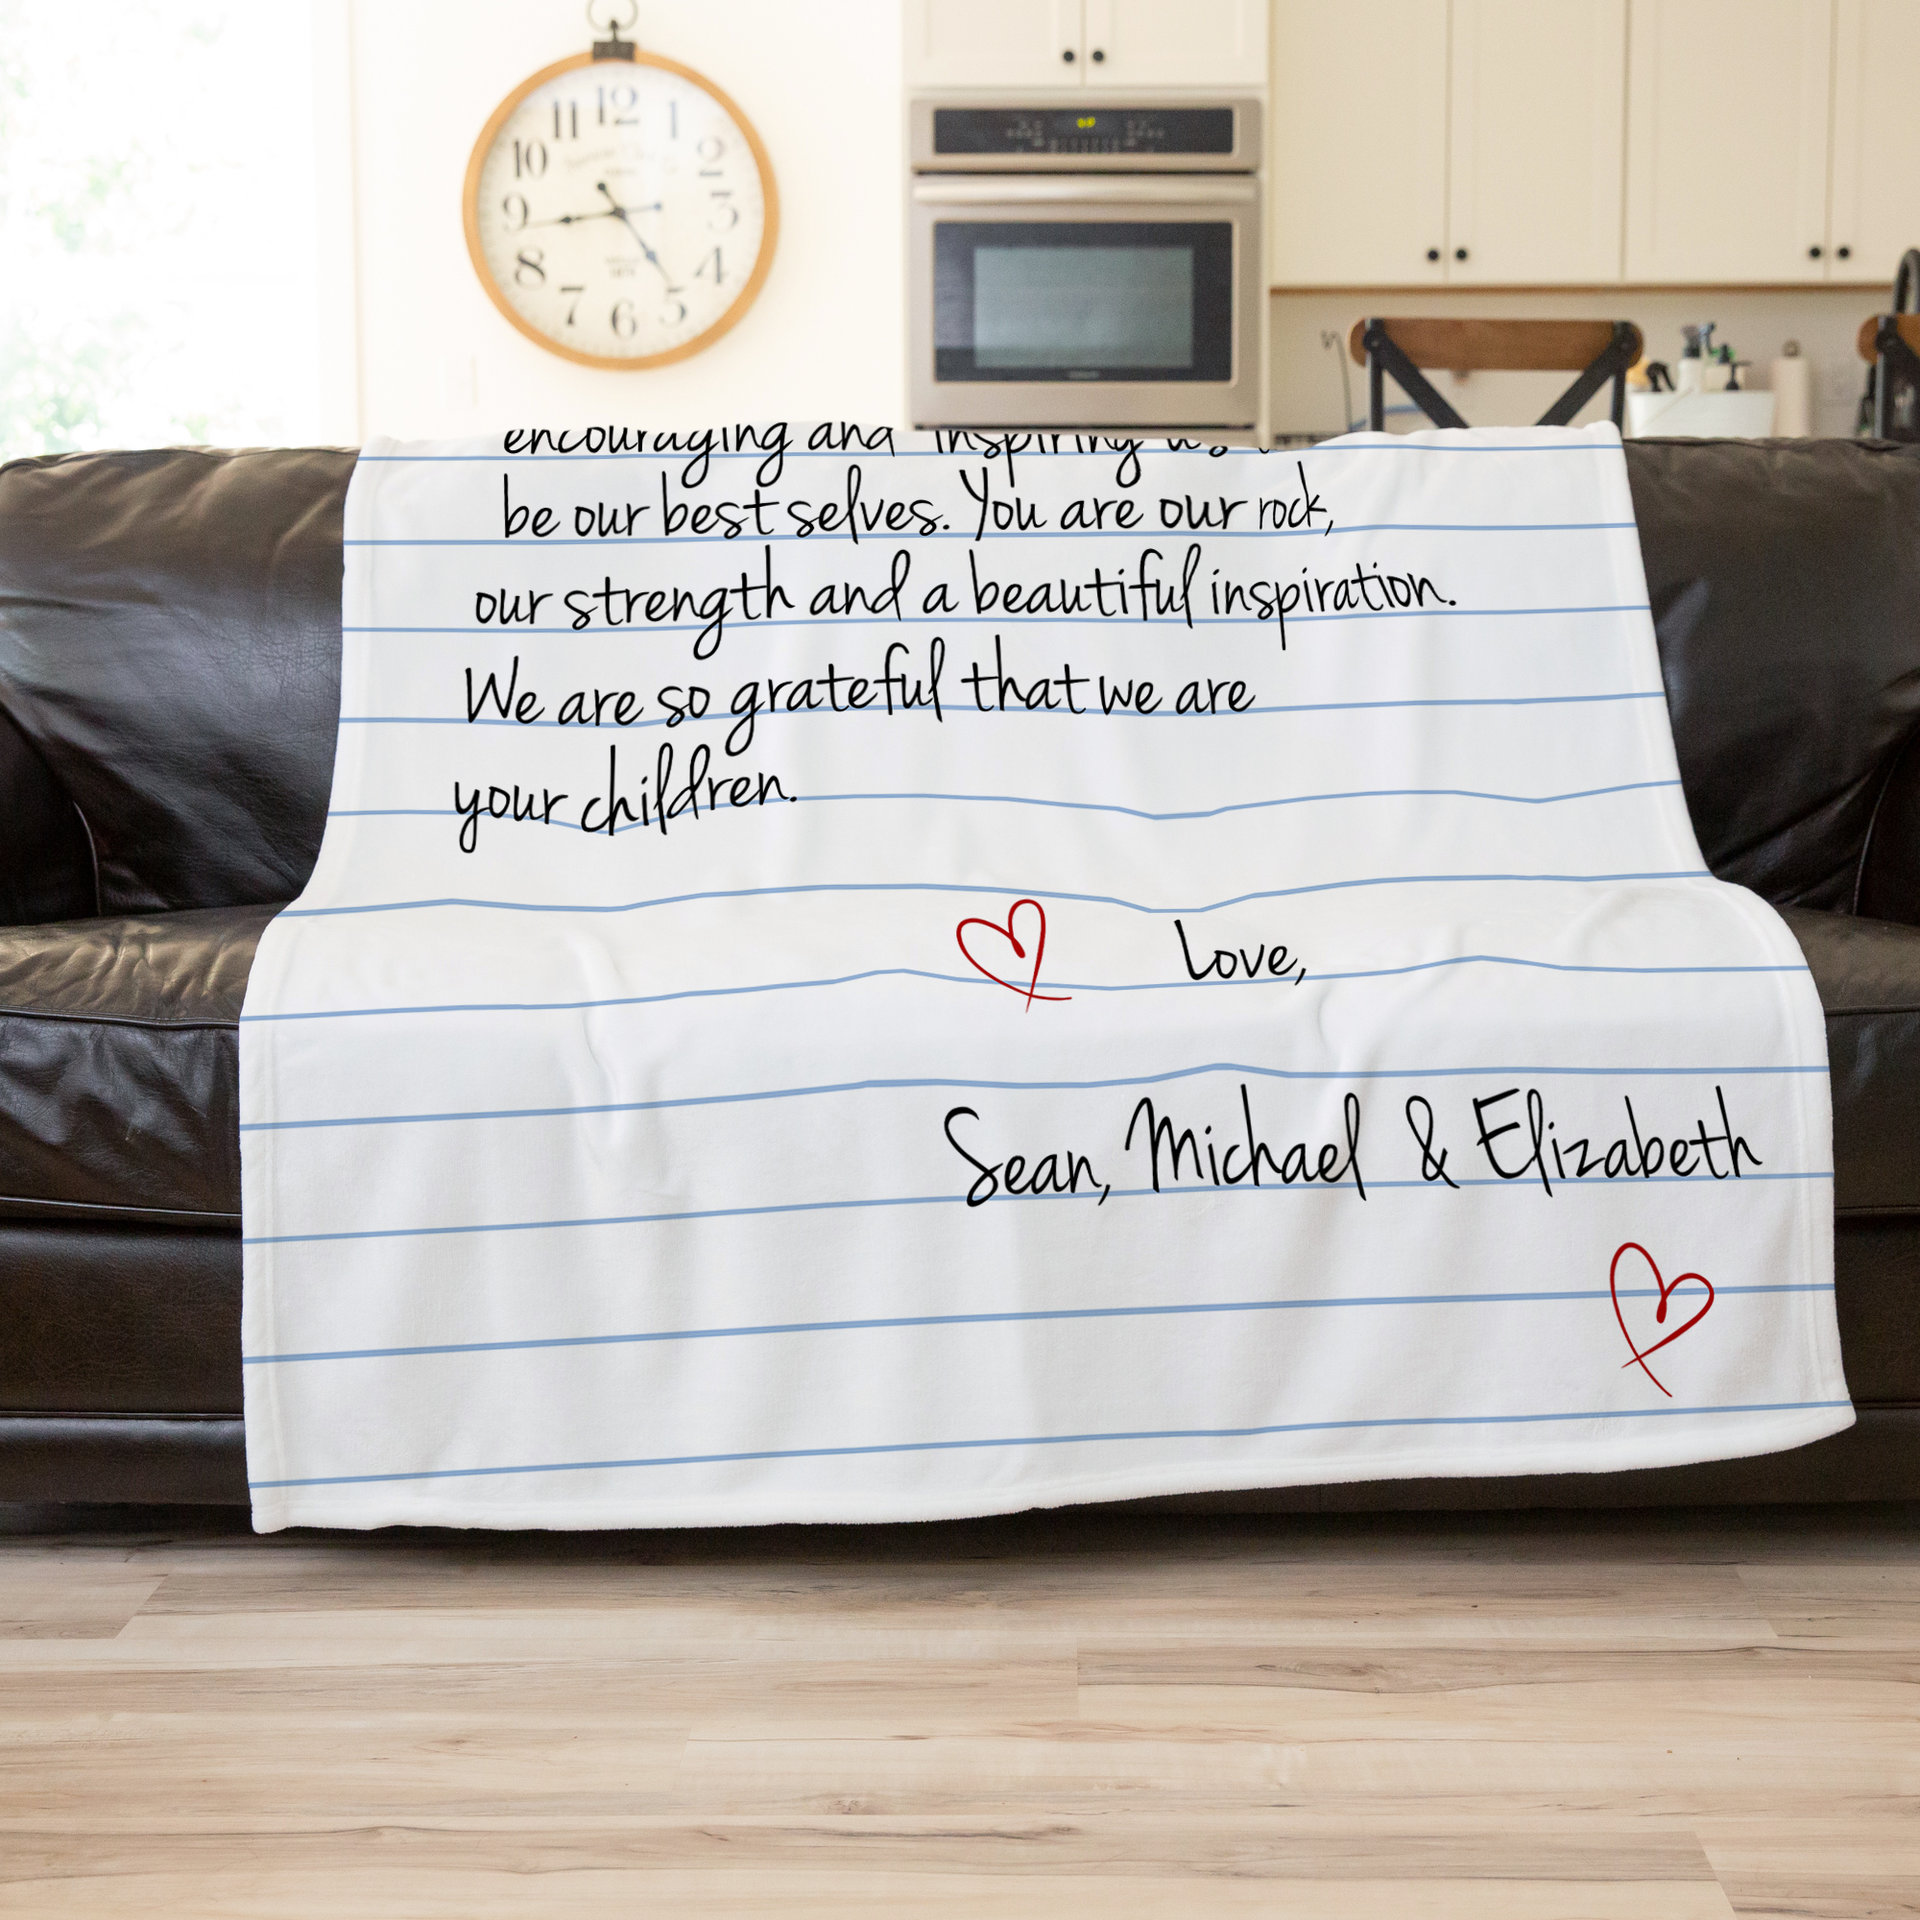 12
11 1
10 2
9 3
8 4
7 5
6
encouraging and inspiring us
be our best selves. You are our rock,
our strength and a beautiful inspiration.
We are so grateful that we are
your children.
Love,
Sean, Michael & Elizabeth